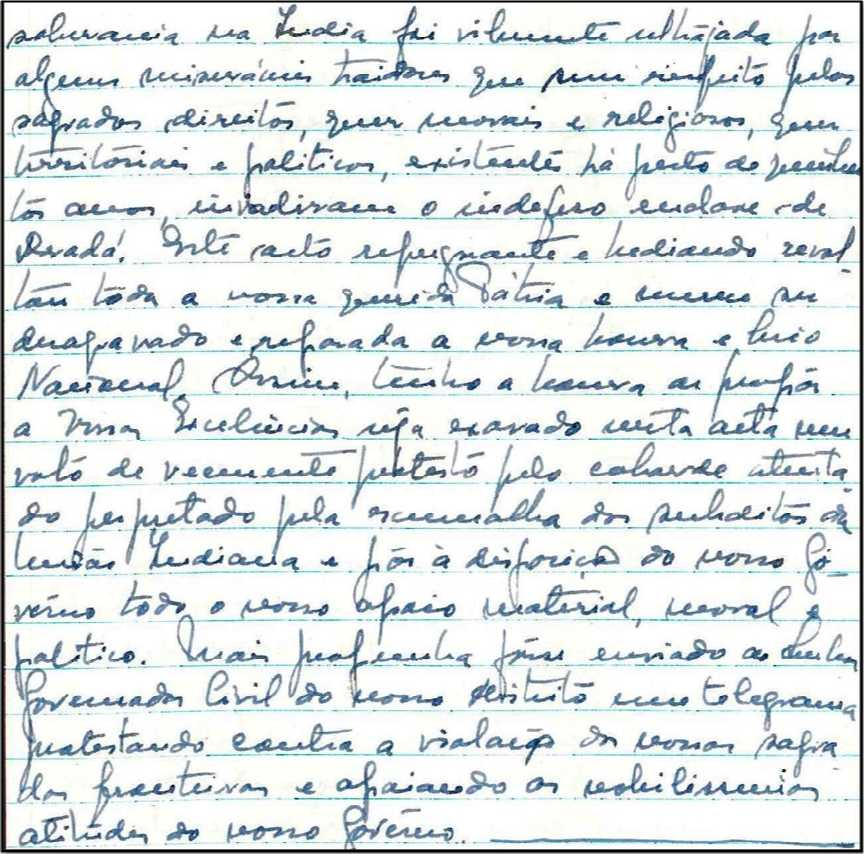 soberania na India foi vilmente ultrajada por
alguns miseráveis traidores que sem respeito pelos
sagrados direitos, quer morais e religiosos, quer
territóriais e politicos, existentes há perto de quinhen
tos anos, invadiram o indefeso enclave de
Dradá. Este acto repugnante e hediondo revol
tou tôda a nossa querida Pátria e
desagravado e reparada a nossa honra e brio
Nacional. Assim, tenho a honra de propôr
a Vossas Excelências seja exarado nesta acta um
voto de veemente protesto pelo cobarde atenta
do perpretado pela escumalha dos subditos da
União Indiana e pôr à disposição do nosso Go
vêrno todo o nosso apoio material, moral e
politico. Mais propunha fôsse enviado ao Senhor
Governador Civil do nosso distrito um telegrama
protestando contra a violação das nossas sagra
das fronteiras e apoiando as nobilissimas
atitudes do nosso Govêrno.